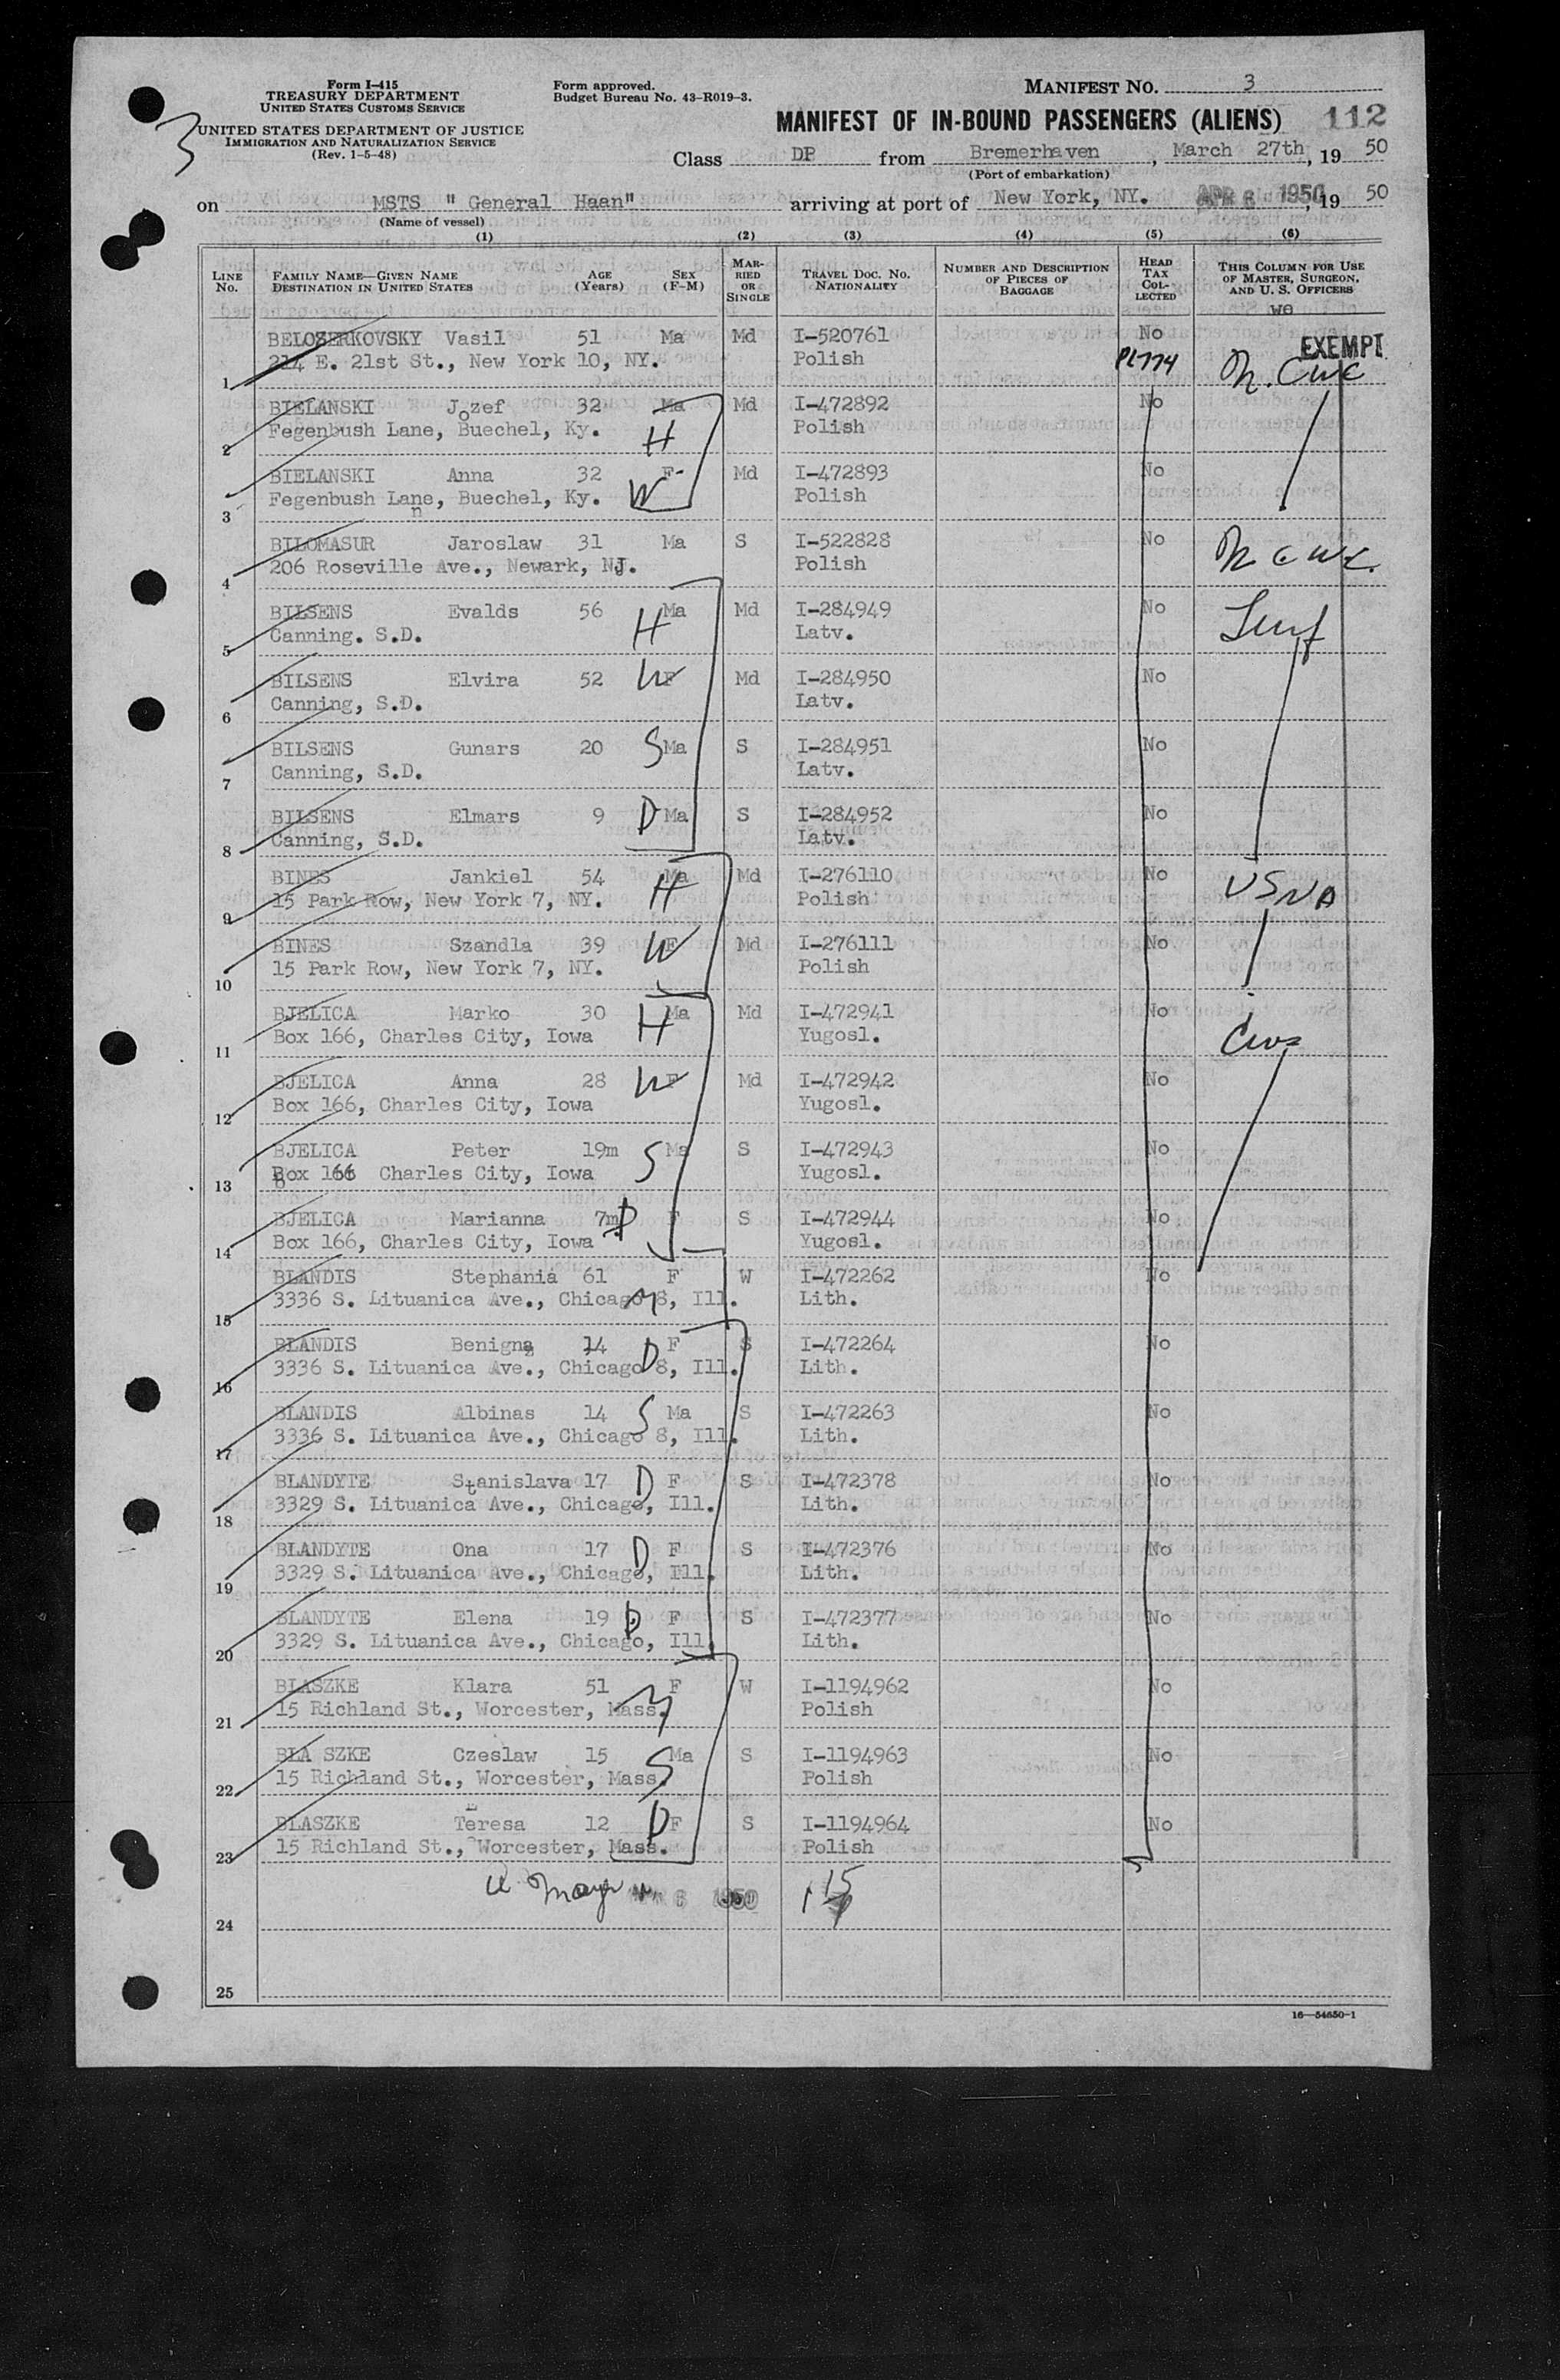 Form I-415
TREASURY DEPARTMENT
UNITED STATES CUSTOMS SERVICE
UNITED STATES DEPARTMENT OF JUSTICE
IMMIGRATION AND NATURALIZATION SERVICE
(Rev. 1-5-48)
3
Form approved.
Budget Bureau No. 43-R019-3.
MANIFEST NO. 3
MANIFEST OF IN-BOUND PASSENGERS (ALIENS) 112
Class DP from Bremerhaven, March 27th, 19 50
(Port of embarkation)
on MSTS " General Haan" arriving at port of New York, NY. APR 6 1950, 19 50
(Name of vessel)
(1) (2) (3) (4) (5) (6)
LINE No. FAMILY NAME—GIVEN NAME DESTINATION IN UNITED STATES AGE (Years) SEX (F-M) MARRIED OR SINGLE TRAVEL DOC. NO. NATIONALITY NUMBER AND DESCRIPTION OF PIECES OF BAGGAGE HEAD TAX COLLECTED THIS COLUMN FOR USE OF MASTER, SURGEON, AND U. S. OFFICERS
we
BELOZERKOVSKY Vasil 51 Ma Md I-520761 No EXEMPT
1 214 E. 21st St., New York 10, NY. Polish PL774 N.CWC
BIELANSKI Jozef 32 Ma Md I-472892 No
2 Fegenbush Lane, Buechel, Ky. H Polish
BIELANSKI Anna 32 F Md I-472893 No
3 Fegenbush Lane, Buechel, Ky. W Polish
BILOMASUR Jaroslaw 31 Ma S I-522828 No
4 206 Roseville Ave., Newark, NJ. Polish NCWC.
BILSENS Evalds 56 H Ma Md I-284949 No
5 Canning. S.D. Latv.
BILSENS Elvira 52 W F Md I-284950 No
6 Canning, S.D. Latv.
BILSENS Gunars 20 S Ma S I-284951 No
7 Canning, S.D. Latv.
BILSENS Elmars 9 D Ma S I-284952 No
8 Canning, S.D. Latv.
BINES Jankiel 54 H Ma Md I-276110 No
9 15 Park Row, New York 7, NY. Polish USNA
BINES Szandla 39 W F Md I-276111 No
10 15 Park Row, New York 7, NY. Polish
BJELICA Marko 30 H Ma Md I-472941 No
11 Box 166, Charles City, Iowa Yugosl. Cws
BJELICA Anna 28 W F Md I-472942 No
12 Box 166, Charles City, Iowa Yugosl.
BJELICA Peter 19m S Ma S I-472943 No
13 Box 166 Charles City, Iowa Yugosl.
BJELICA Marianna 7m D F S I-472944 No
14 Box 166, Charles City, Iowa Yugosl.
BLANDIS Stephania 61 F W I-472262 No
15 3336 S. Lituanica Ave., Chicago 8, Ill. M Lith.
BLANDIS Benigna 14 F S I-472264 No
16 3336 S. Lituanica Ave., Chicago 8, Ill. D Lith.
BLANDIS Albinas 14 S Ma S I-472263 No
17 3336 S. Lituanica Ave., Chicago 8, Ill. Lith.
BLANDYTE Stanislava 17 D F S I-472378 No
18 3329 S. Lituanica Ave., Chicago, Ill. Lith.
BLANDYTE Ona 17 D F S I-472376 No
19 3329 S. Lituanica Ave., Chicago, Ill. Lith.
BLANDYTE Elena 19 D F S I-472377 No
20 3329 S. Lituanica Ave., Chicago, Ill. Lith.
BLASZKE Klara 51 F W I-1194962 No
21 15 Richland St., Worcester, Mass. M Polish
BLA SZKE Czeslaw 15 S Ma S I-1194963 No
22 15 Richland St., Worcester, Mass. Polish
BLASZKE Teresa 12 D F S I-1194964 No
23 15 Richland St., Worcester, Mass. Polish
6 1950
24
25
16—54650-1